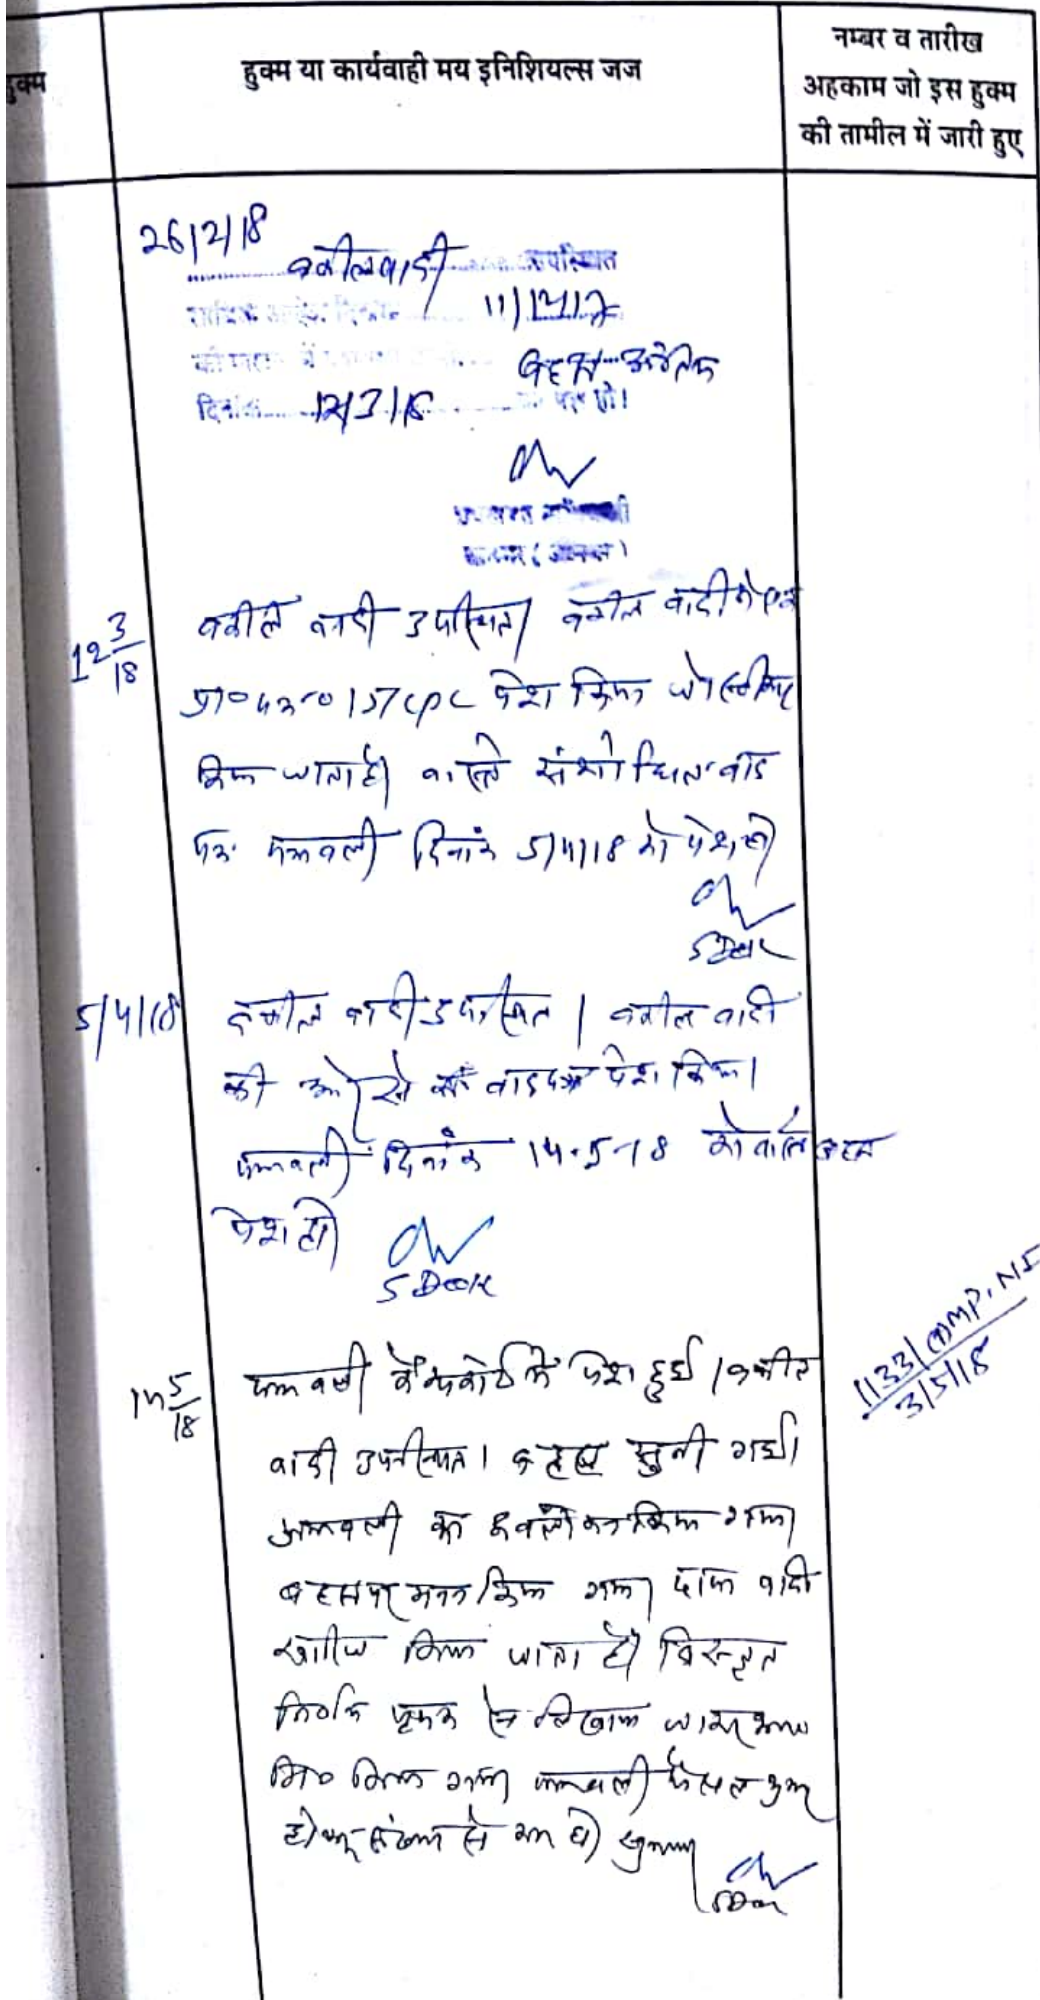 हुक्म
हुक्म या कार्यवाही मय इनिशियल्स जज
नम्बर व तारीख
अहकाम जो इस हुक्म
की तामील में जारी हुए
26/2/18
वकील वादी उपस्थित
दिनांक 12/3/18 को पेश हो।
12 3/18
वकील वादी उपस्थित। वकील वादी ने एक
प्रा०प०० 151 CPC पेश किया जो स्वीकार
किया जाता है। वास्ते संशोधित वाद
पत्र पत्रावली दिनांक 5/4/18 को पेश हो।
SDOK
5/4/18
वकील वादी उपस्थित। वकील वादी
की ओर से वादपत्र पेश किया।
पत्रावली दिनांक 14-5-18 को वास्ते बहस
पेश हो।
SDOK
14 5/18
पत्रावली कैम्प कोर्ट में पेश हुई। वकील
वादी उपस्थित। बहस सुनी गई।
पत्रावली का अवलोकन किया गया।
बहस पर मनन किया गया। दावा वादी
खारीज किया जाता है। विस्तृत
निर्णय पृथक से लिखाया जाकर
किया गया। पत्रावली फैसल शुमार
होकर संख्या से कम हो।
SDOK
1133/COMP.NI
3/5/18